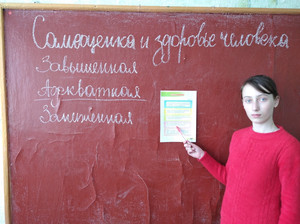 Самооценка и здоровье человека
Завышенная
Адекватная
Заниженная